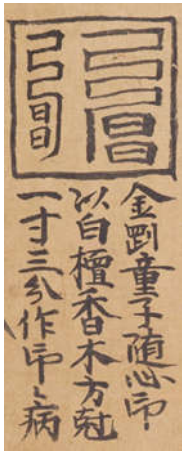 金剛童子随心印
以白檀香木方尅
一寸三分作印〻病